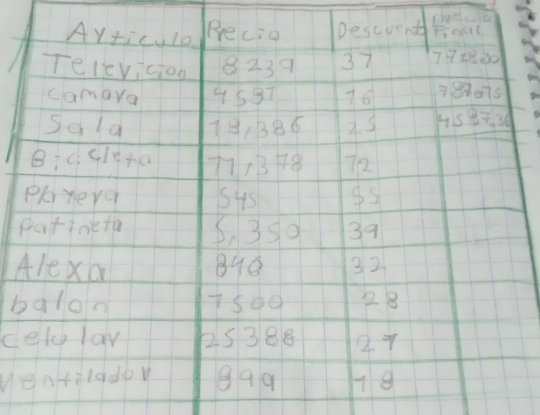 Articulo Precio Descuento Precio Final
Televicion 8239 37
Camara 4587 16
Sala 18,386 25
Bicicleta 11,378 12
Playera 545 55
Patineta 5,350 39
Alexa 840 32
balon 1500 28
Celular 25388 27
Ventilador 849 18